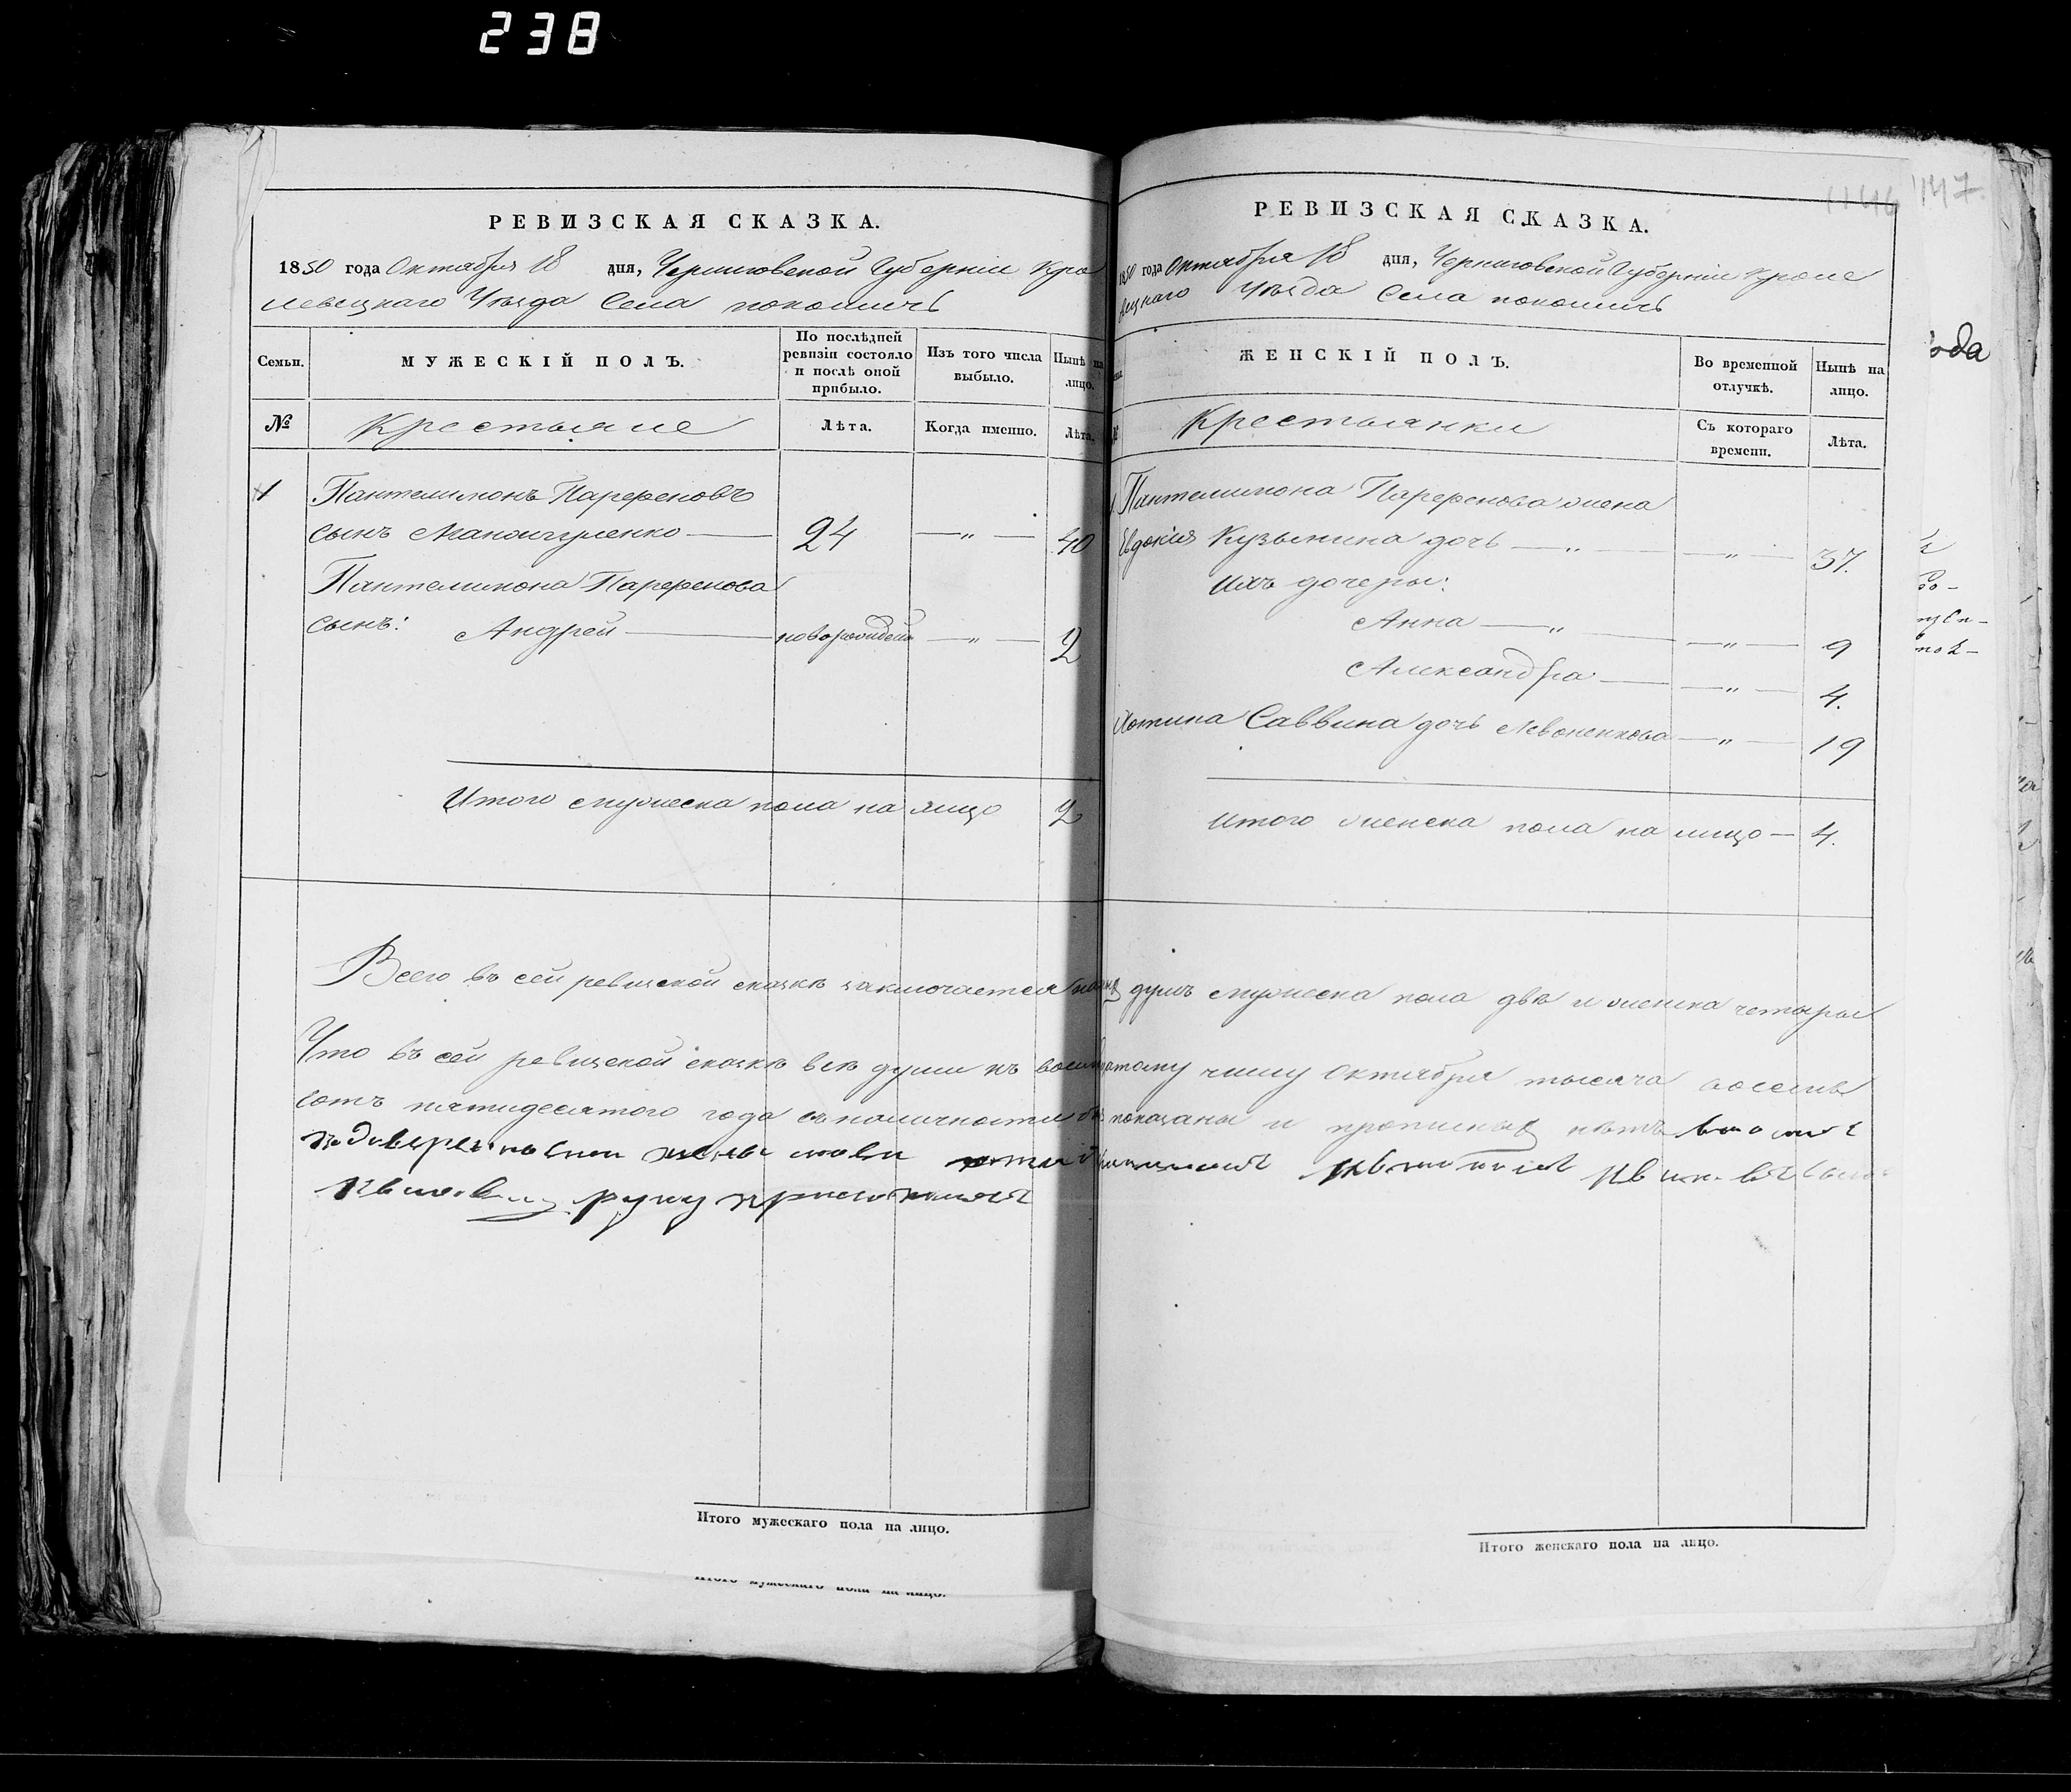 238
РЕВИЗСКАЯ СКАЗКА.
1850 года Октября 18 дня, Черниговской Губерніи Кро
левецкаго Уѣзда Села покошичь
Семьи.
МУЖЕСКІЙ ПОЛЪ.
По послѣдней ревизіи состояло и послѣ оной прибыло.
Изъ того числа выбыло.
Нынѣ на лицо.
№
Крестьяне
Лѣта.
Когда именно.
Лѣта.
1 Пантелимонъ Парфеновъ
сынъ 24 — „ — 40
Пантелимона Парфенова
сынъ: Андрей новорожденъ — „ — 2
Итого мужеска пола на лицо 2
РЕВИЗСКАЯ СКАЗКА.
1850 года Октября 18 дня, Черниговской Губерніи Кроле
вецкаго Уѣзда Села покошичь
ЖЕНСКІЙ ПОЛЪ.
Во временной отлучкѣ.
Нынѣ на лицо.
№
Крестьянки
Съ котораго времени.
Лѣта.
Пантелимона Парфенова жена
Евдокія Кузьмина дочь — „ — — „ — 37.
Ихъ дочеры:
Анна — „ — — „ — 9
Александра — — „ — 4.
Саввина дочь — „ — 19
Итого женска пола на лицо — 4.
Всего въ сей ревизской сказкѣ заключается душъ мужеска пола двѣ и женска четыры
Что въ сей ревизской сказкѣ всѣ души къ числу Октября тысяча восемь
сотъ пятидесятого года показаны и прописныхъ нѣтъ
руку приложилъ
Итого мужескаго пола на лицо.
Итого женскаго пола на лицо.
Итого мужескаго пола на лицо.
147.
ода